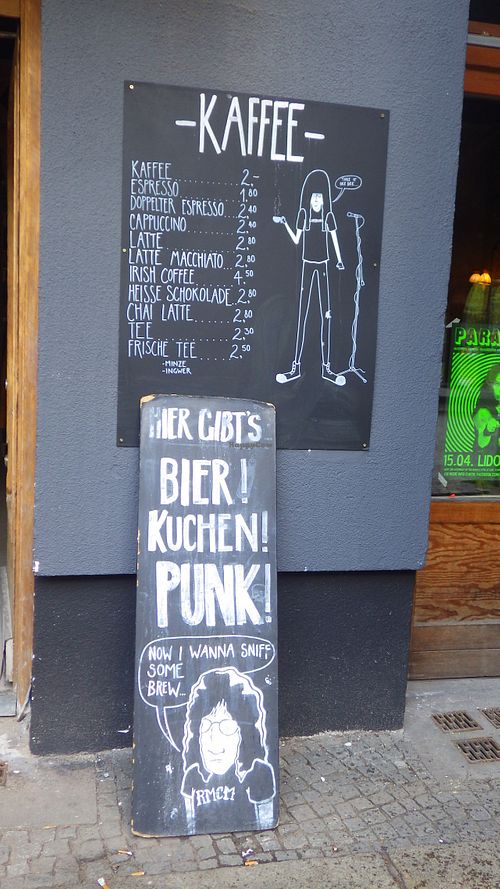 -KAFFEE-
KAFFEE.......... 2.-
ESPRESSO.......... 1.80
DOPPELTER ESPRESSO.... 2.40
CAPPUCCINO.......... 2.40
LATTE.......... 2.80
LATTE MACCHIATO.... 2.80
IRISH COFFEE...... 4.50
HEISSE SCHOKOLADE.. 2.80
CHAI LATTE...... 2.80
TEE.......... 2.30
FRISCHE TEE...... 2.50
-MINZE
-INGWER
HIER GIBT'S
BIER!
KUCHEN!
PUNK!
NOW I WANNA SNIFF
SOME
BREW...
RMCM
PARA
15.04. LIDO